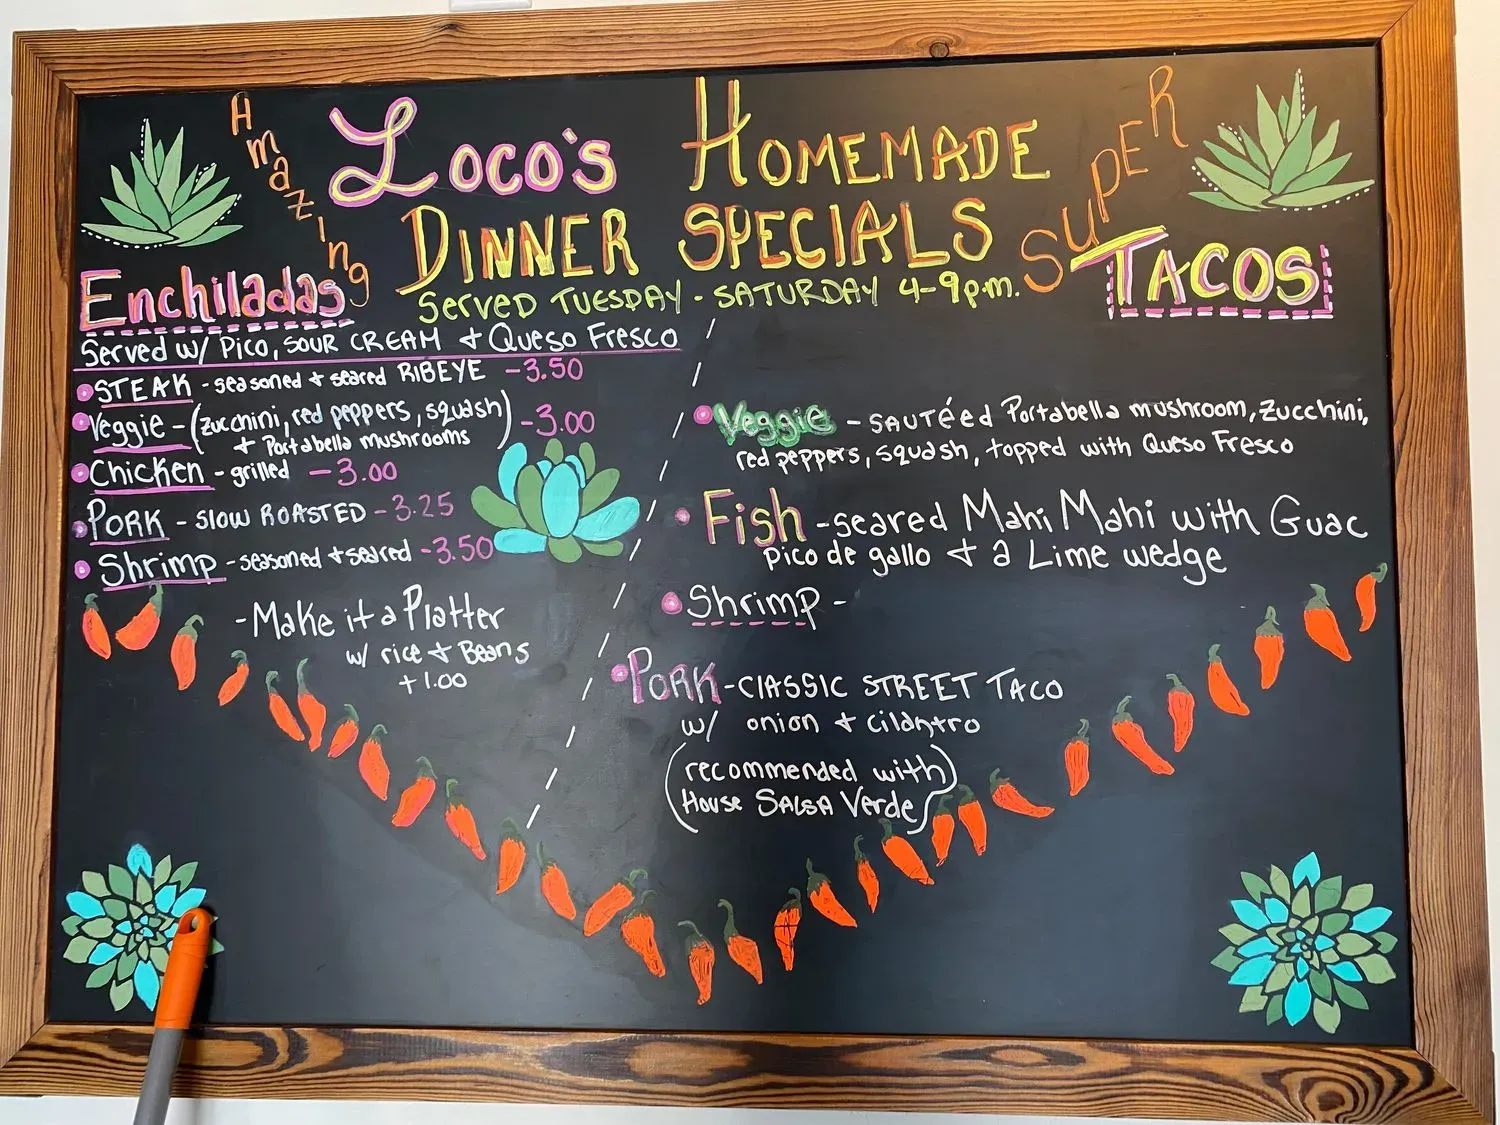 Amazing
Loco's Homemade
Dinner Specials
Served Tuesday - Saturday 4-9p.m.
Enchiladas
Served w/ Pico, sour cream + Queso Fresco
STEAK - seasoned + seared RIBEYE - 3.50
Veggie - (zucchini, red peppers, squash) - 3.00
+ Portabella mushrooms
Chicken - grilled - 3.00
PORK - SLOW ROASTED - 3.25
Shrimp - seasoned + seared - 3.50
- Make it a Platter
w/ rice + Beans
+ 1.00
SUPER
TACOS
Veggie - SAUTÉED Portabella mushroom, zucchini,
red peppers, squash, topped with Queso Fresco
Fish - seared Mahi Mahi with Guac
pico de gallo + a Lime wedge
Shrimp -
PORK - CLASSIC STREET TACO
w/ onion + cilantro
(recommended with
House SALSA Verde)